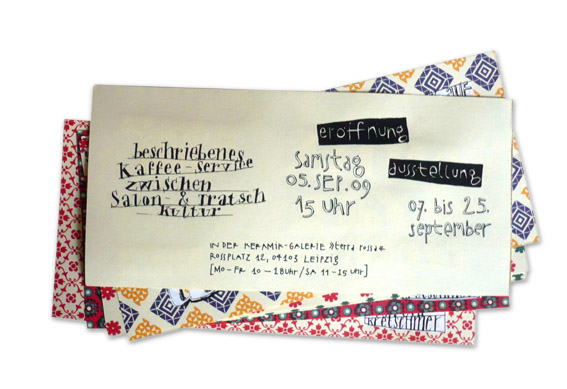 beschriebenes
Kaffee-Service
zwischen
Salon- & Tratsch
Kultur
eröffnung
Samstag
05. SEP. 09
15 Uhr
ausstellung
07. bis 25.
september
IN DER KERAMIK-GALERIE »terra rossa«
ROSSPLATZ 12, 04103 LEIPZIG
[MO-FR 10-18UHr/SA 11-15 UHr]